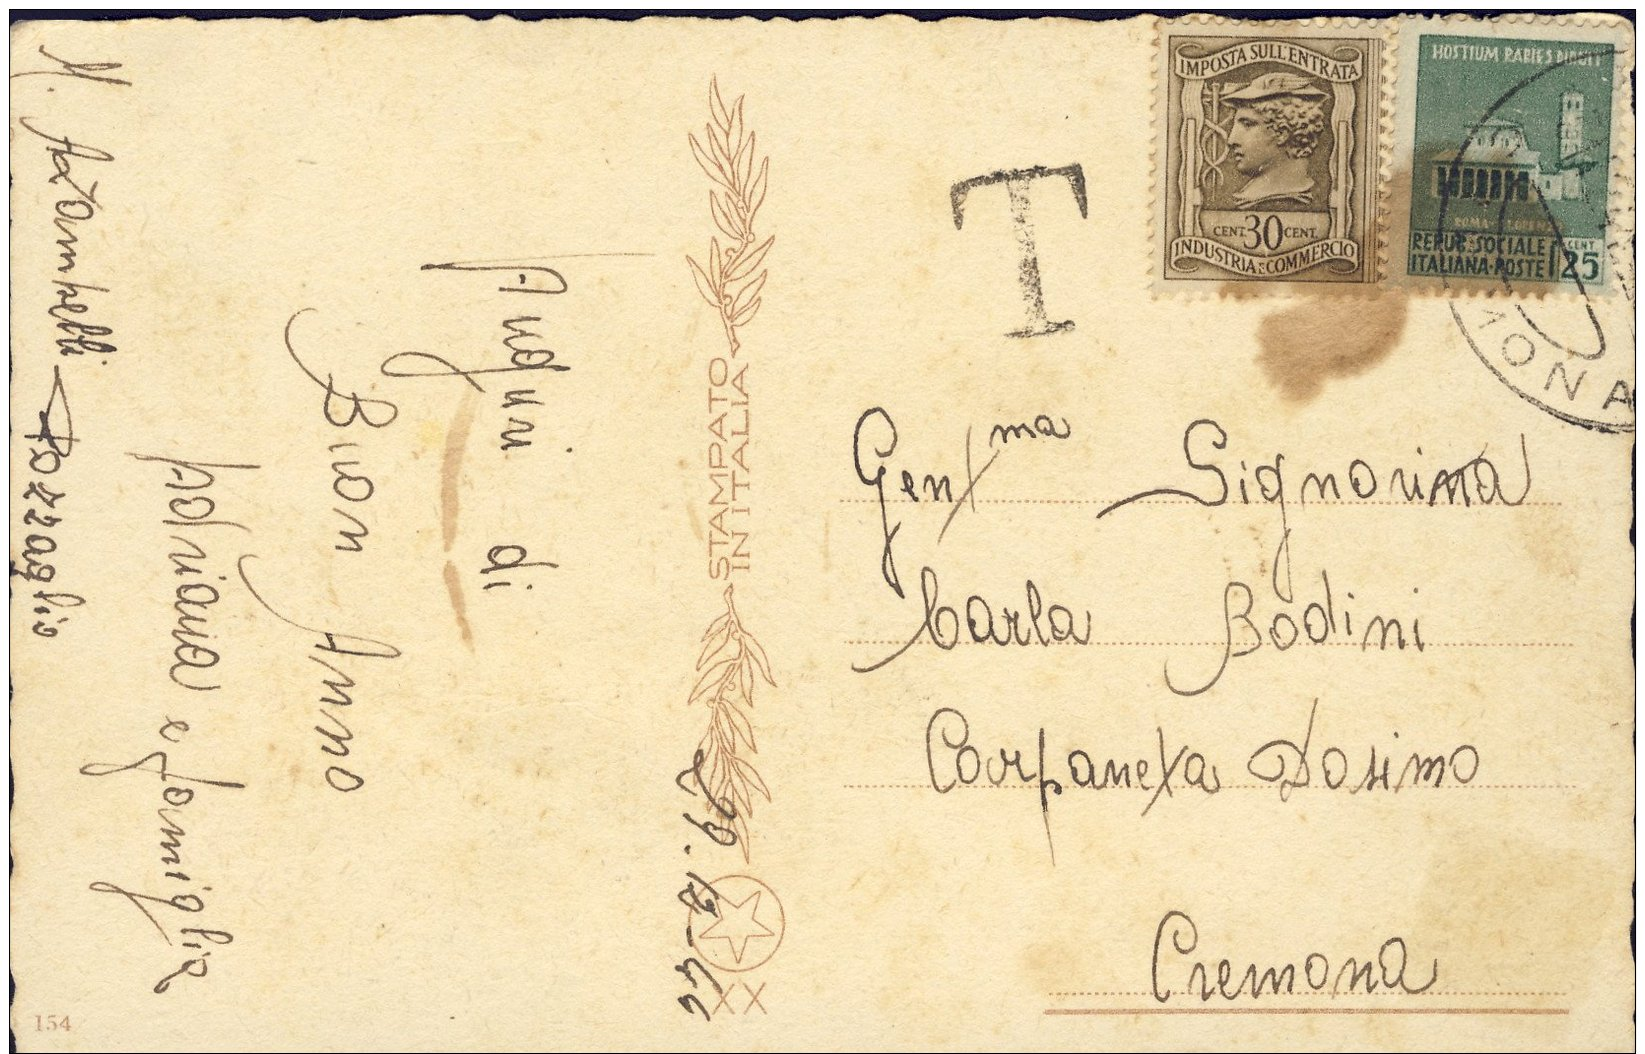 M. Azzampelli Pozzaglio
Auguri di
Buon Anno
Adriana e famiglia
STAMPATO
IN ITALIA
29.12-46
XX
154
T
IMPOSTA SULL'ENTRATA
CENT. 30 CENT.
INDUSTRIA E COMMERCIO
HOSTIUM RABIES DIRUIT
REPUB. SOCIALE
ITALIANA-POSTE
CENT.
25
MONA
Gent.ma Signorina
Carla Bodini
Corpaneta Dosimo
Cremona